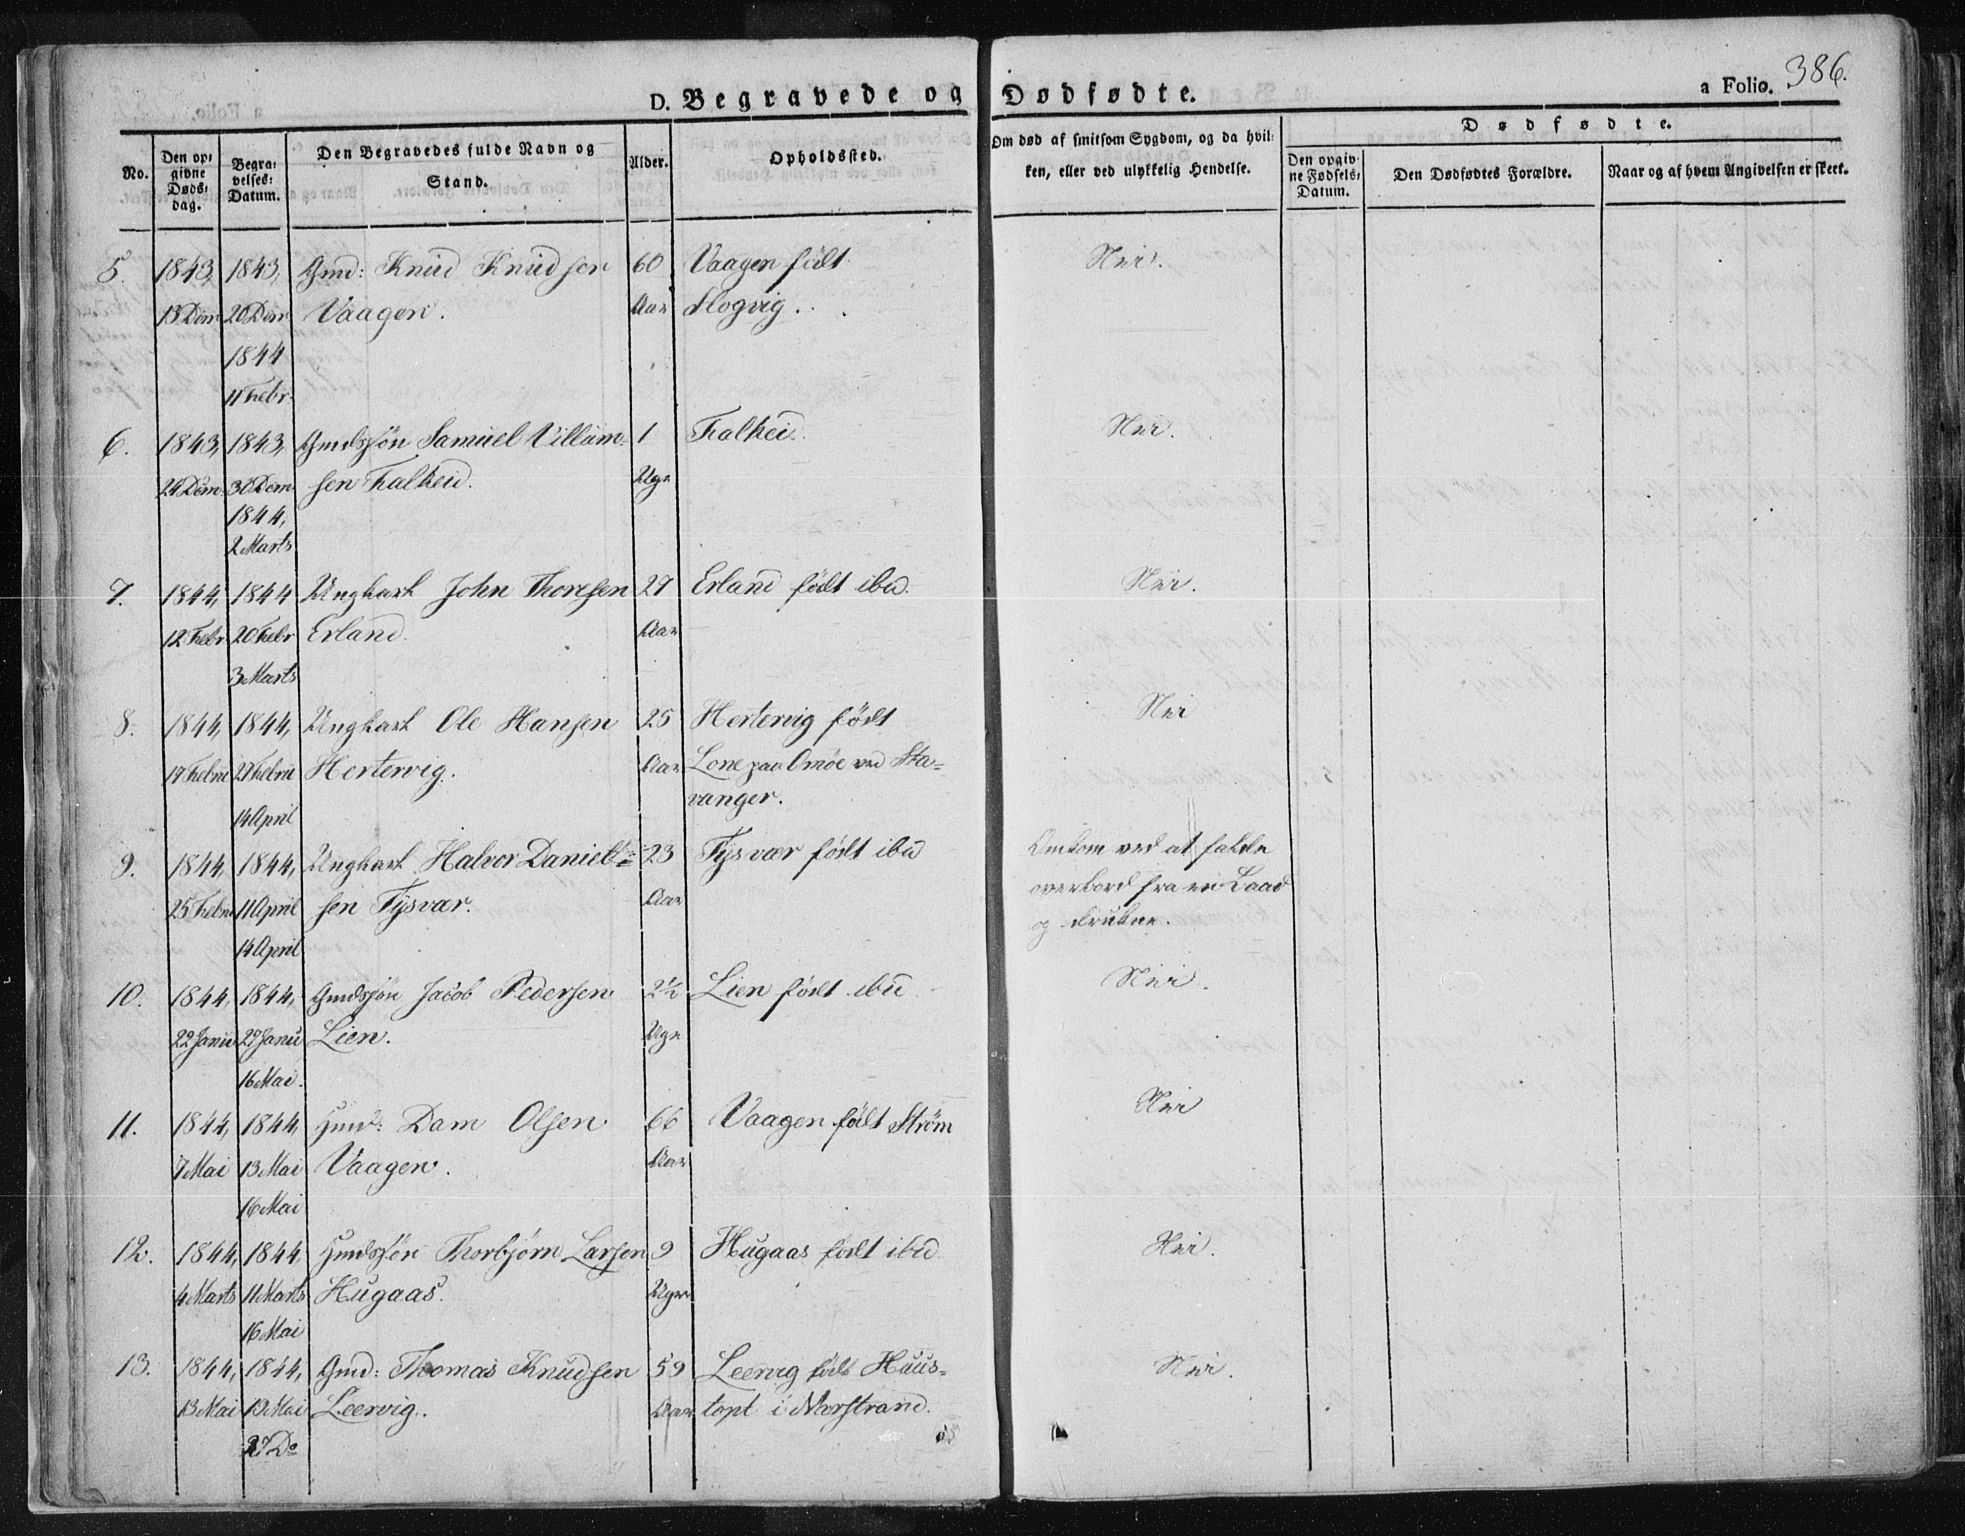 D. Begravede og Dødfødte.
a Folio. 386.
No.
Den opgivne Døds-dag.
Begravelses-Datum.
Den Begravedes fulde Navn og Stand.
Alder.
Opholdssted.
Om død af smitsom Sygdom, og da hvilken, eller ved ulykkelig Hendelse.
Dødfødte.
Den opgivne Fødsels-Datum.
Den Dødfødtes Forældre.
Naar og af hvem Angivelsen er skeet.
5. 1843, 1843, Gmd: Knud Knudsen 60 Vaagen født Nei.
13 Dcm 20 Dcm Vaagen. Aar Slogvig.
1844
11 Febr.
6. 1843, 1843, Gmdssøn Samuel Villum- 1 Falkei. Nei.
24 Dcm 30 Dcm sen Falkeid. Uge
1844,
2 Marts
7. 1844, 1844 Ungkarl John Thoresen 27 Erland født ibid. Nei.
12 Febr 20 Febr Erland. Aar
3 Marts
8. 1844, 1844, Ungkarl Ole Hansen 25 Hertervig født Nei
17 Febru 27 Febru Hertervig. Aar Lone paa Omøe ved Sta-
14 April vanger.
9. 1844, 1844, Ungkarl Halvor Daniel- 23 Tysvær født ibid Omkom ved at falde
25 Febru 11 April sen Tysvær. Aar overbord fra en Baad
14 April og drukne.
10. 1844, 1844, Gmdssøn Jacob Pedersen 2½ Lien født ibid Nei.
22 Janu 29 Janu Lien. Uge
16 Mai.
11. 1844, 1844, Hmd: Dam Olsen 66 Vaagen født Strøm Nei
7 Mai 13 Mai Vaagen. Aar
16 Mai
12. 1844, 1844, Hmdssøn Thorbjørn Larsen 9 Hugaas født ibid Nei.
4 Marts 11 Marts Hugaas. Uger
16 Mai
13. 1844, 1844, Gmd: Thomas Knudsen 59 Leervig født Huus- Nei.
13 Mai 19 Mai Leervig. Aar topt i Nærstrand.
27 Do